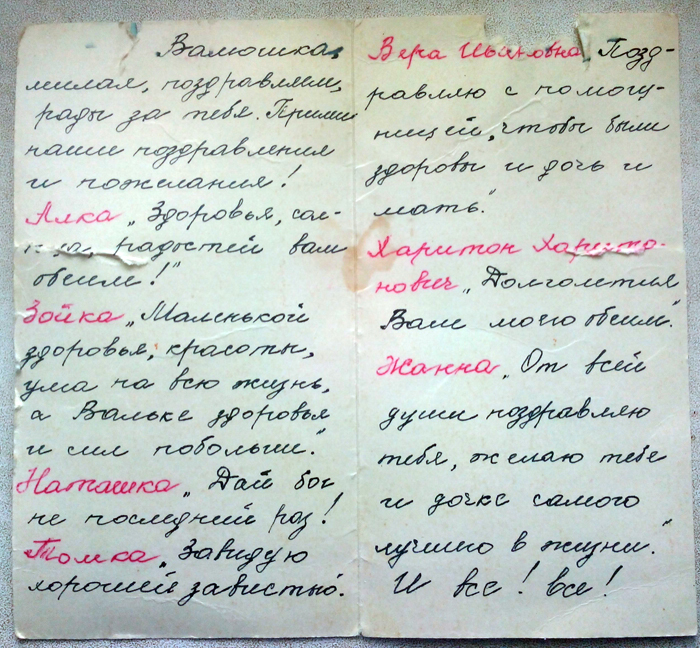 Валюшка,
милая, поздравляем,
рады за тебя. Прими
наши поздравления
и пожелания!
Алка „Здоровья, сол-
нца, радостей вам
обеим!"
Зойка „Маленькой
здоровья, красоты,
ума на всю жизнь,
а Вальке здоровья
и сил побольше."
Наташка „Дай бог
не последний раз!
Томка „Завидую
хорошей завистью.
Вера Ивановна Позд-
равляю с помощ-
ницей, чтобы были
здоровы и дочь и
мать."
Харитон Харито-
нович „Долголетия
Вам обеим."
Жанна „От всей
души поздравляю
тебя, желаю тебе
и дочке самого
лучшего в жизни."
И все! все!